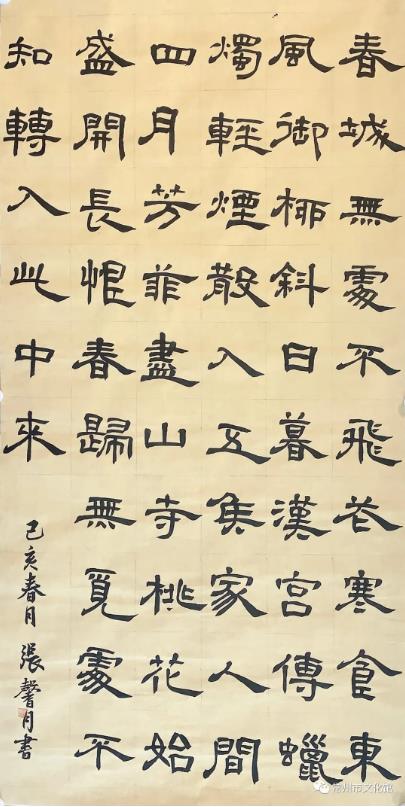 春城無處不飛花寒食東
風御柳斜日暮漢宮傳蠟
燭輕煙散入五矦家人間
四月芳菲盡山寺桃花始
盛開長恨春歸無覓處不
知轉入此中來
己亥春月 張馨月書